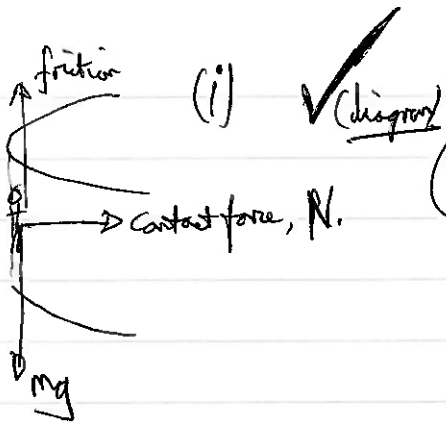 friction
(i) ✓ (diagram)
Contact force, N.
mg